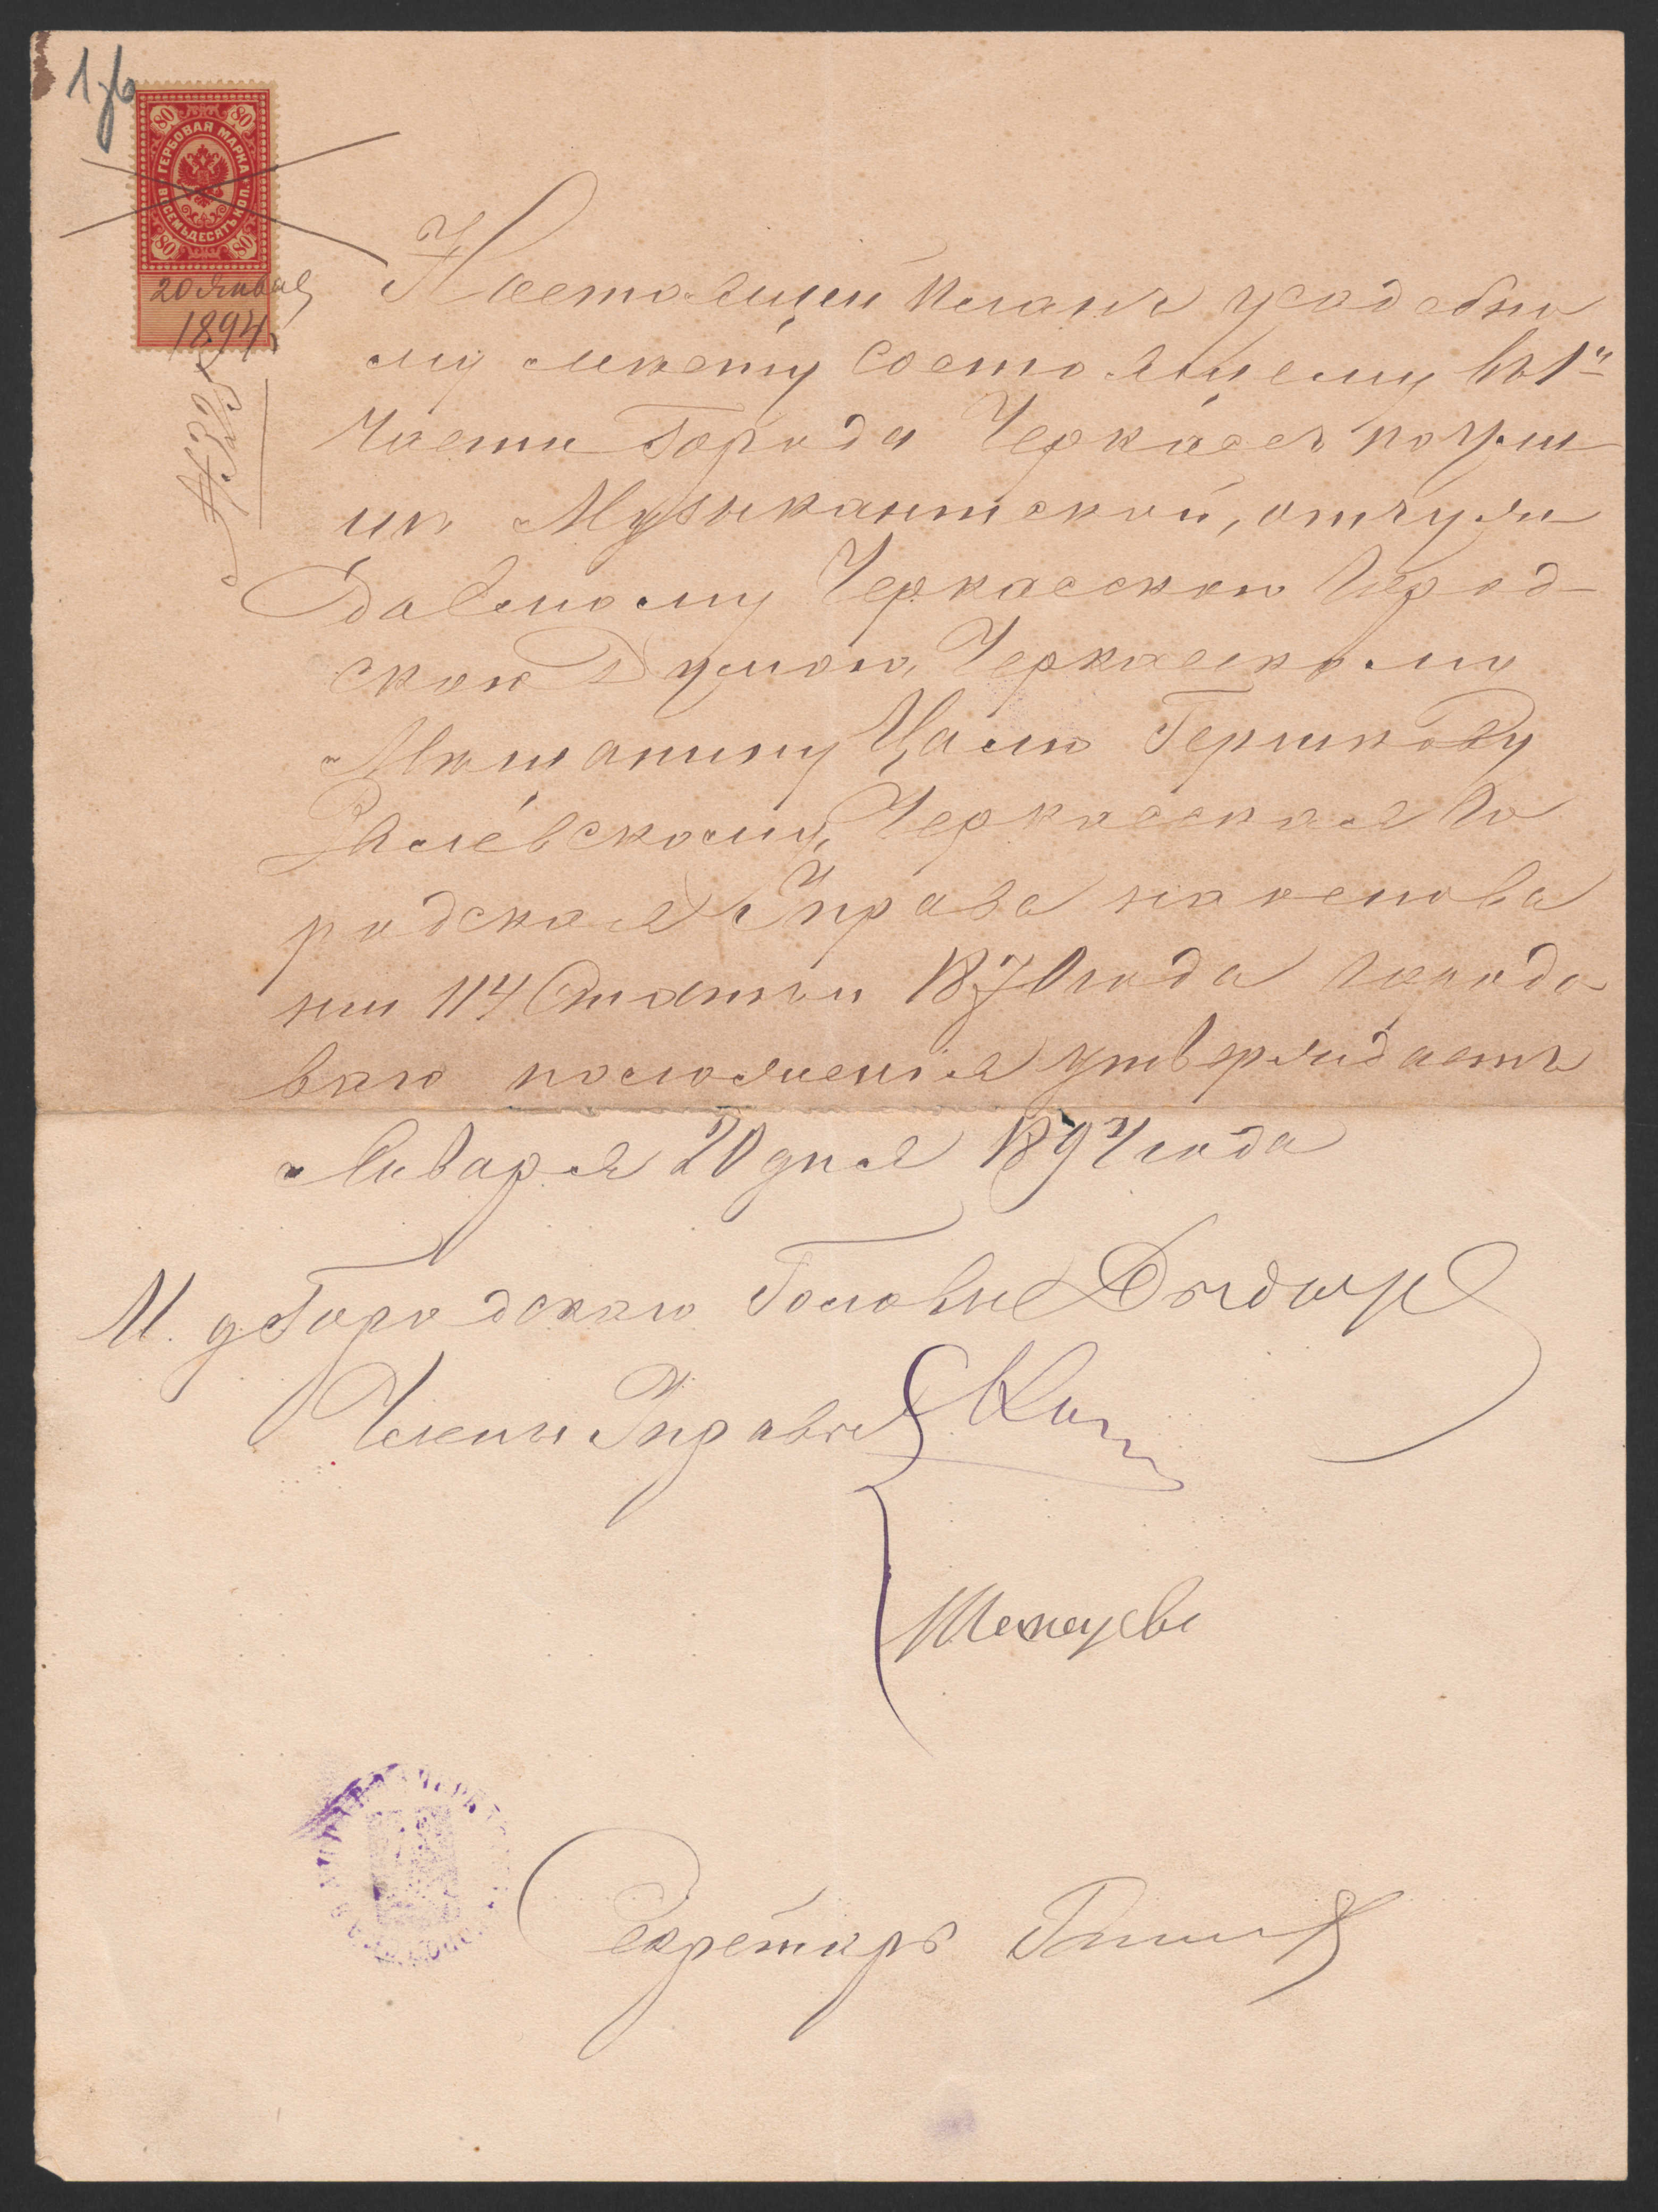 80 80
ГЕРБОВАЯ МАРКА
ВОСЕМЬДЕСЯТЪ КОП.
80 80
20 Января
1894 г.
№ 325
Настоящей планъ усадебно
му мѣсту состоящему въ 1й
части города Черкасъ по ули
цѣ Музыкантской, отчуж
давному Черкасскою Город-
скою Думою, Черкасскому
Мѣщанину Цалю Гершкову
Злевскому, Черкасская Го
родская Управа на основа
нии 114 Статьи 1870 года городо
ваго положенія утверждаетъ
Января 20 дня 1894 года
И. д. Городскаго Головы
Члены Управы
Секретарь